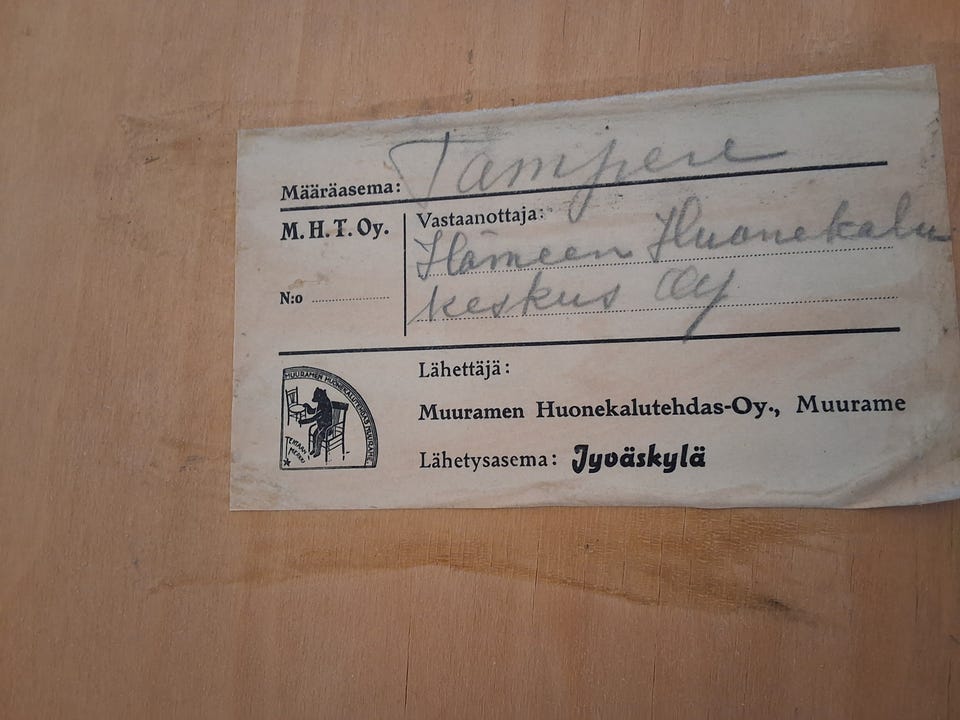 Määräasema: Tampere
M.H.T. Oy.
Vastaanottaja:
Hämeen Huonekalu
keskus Oy
N:o
MUURAMEN HUONEKALUTEHDAS MUURAME
TEHTAAN
MERKKI
Lähettäjä:
Muuramen Huonekalutehdas-Oy., Muurame
Lähetysasema: Jyväskylä